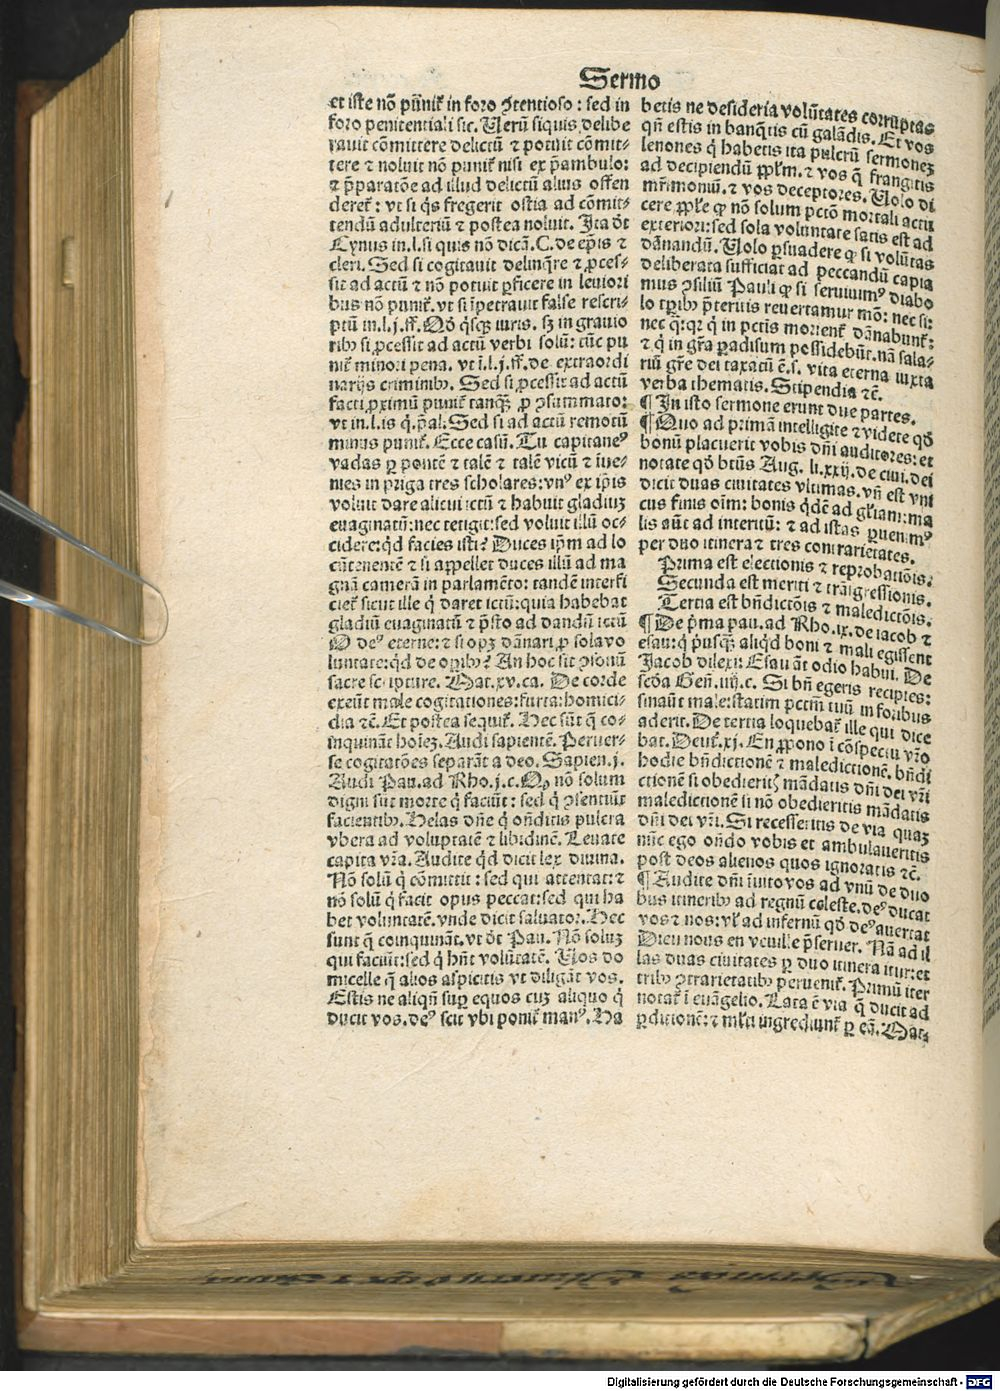 Sermo
et iste nõ pũnit᷑ in foro ꝯtentioso : sed in
foro penitentiali sic. Uerũ siquis delibe
rauit cõmittere delictũ ⁊ potuit cõmit-
tere ⁊ noluit nõ punit᷑ nisi ex p̃ambulo:
⁊ p̃paratõe ad illud delictũ alius offen
deret᷑ : vt si q̃s fregerit ostia ad cõmit-
tendũ adulteriũ ⁊ postea noluit. Ita dt̃
Cynus in.l.si quis nõ dicã.C.de ep̃is ⁊
cleri. Sed si cogitauit delinq̃re ⁊ ꝓces-
sit ad actũ ⁊ nõ potuit ꝑficere in leuiori
bus nõ punit᷑. vt si ĩpetrauit false rescri-
ptũ in.l.j.ff. Qđ q̃sqꝫ iuris. sꝫ in grauio
ribꝰ si ꝓcessit ad actũ verbi solũ: tũc pu
nit᷑ minori pena. vt ĩ.l.j.ff.de extraordi
narijs criminibꝰ. Sed si ꝓcessit ad actũ
facti ꝓximũ punit᷑ tanqꝫ ꝓ ꝯsummato:
vt in.l.is q̃.p̃al. Sed si ad actũ remotũ
minus punit᷑. Ecce casũ. Tu capitaneꝰ
vadas ꝑ pontẽ ⁊ talẽ ⁊ talẽ vicũ ⁊ iue-
nies in priga tres scholares: vnꝰ ex ip̃is
voluit dare alicui ictũ ⁊ habuit gladiuꝫ
euaginatũ: nec tetigit: sed voluit illũ oc-
cidere: q̃d facies isti? Duces ip̃m ad lo
cũtenentẽ ⁊ si appellet duces illũ ad ma
gnã camerã in parlamẽto: tandẽ interfi
ciet᷑ sicut ille q̃ daret ictũ: quia habebat
gladiũ euaginatũ ⁊ p̃sto ad dandũ ictũ
O deꝰ eterne: ⁊ si opꝫ dãnari ꝓ sola vo
luntate: q̃d de opibꝰ? An hoc sit ꝯsonũ
sacre scripture. Mat.xv.ca. De corde
exeũt male cogitationes: furta: homici-
dia ⁊c̃. Et postea sequit᷑. Hec sũt q̃ co-
inquinãt hoĩeꝫ. Audi sapientẽ. Peruer-
se cogitatões separãt a deo. Sapien.j.
Audi Pau.ad Rho.j.c. Qꝫ nõ solum
digni sũt morte q̃ faciũt : sed q̃ ꝯsentiũt
facientibꝰ. Helas dñe q̃ oñditis pulcra
vbera ad voluptatẽ ⁊ libidinẽ. Leuate
capita vr̃a. Audite q̃d dicit lex diuina.
Nõ solũ q̃ cõmittit : sed qui attentat: ⁊
nõ solũ q̃ facit opus peccat: sed qui ha
bet voluntatẽ. vnde dicit saluator. Hec
sunt q̃ coinquinãt. vt dt̃ Pau. Nõ soluꝫ
qui faciũt: sed q̃ hñt volũtatẽ. Uos do
micelle q̃ alios aspicitis vt diligãt vos.
Estis ne aliqñ suꝑ equos cuꝫ aliquo q̃
ducit vos. deꝰ scit vbi ponit᷑ manꝰ. Ha
betis ne desideria volũtates corruptas
qñ estis in banq̃tis cũ galãdis. Et vos
lenones q̃ habetis ita pulcrũ sermoneꝫ
ad decipiendũ ppl̃m. ⁊ vos q̃ frangitis
mr̃imoniũ. ⁊ vos deceptores. Uolo di
cere ppl̃e ꝙ nõ solum pctõ mortali actu
exteriori: sed sola voluntate satis est ad
dãnandũ. Uolo ꝑsuadere ꝙ si volũtas
deliberata sufficiat ad peccandũ capia
mus ꝯsiliũ Pauli ꝙ si seruiuimꝰ diabo
lo tꝑibꝰ p̃teritis reuertamur mõ: nec si:
nec q̃: qꝛ q̃ in pctis morient᷑ dãnabunt᷑:
⁊ q̃ in gr̃a ꝑadisum possidebũt. nã sala-
riũ gr̃e dei taxatũ ẽ. s. vita eterna iuxta
verba thematis. Stipendia ⁊c̃.
¶ In isto sermone erunt due partes.
¶ Quo ad primã intelligite ⁊ videte qđ
bonũ placuerit vobis dñi auditores: et
notate qđ btũs Aug. li.xxij.de ciui. dei
dicit duas ciuitates vltimas. vñ est vni
cus finis oĩm: bonis q̃dẽ ad gl̃iam: ma
lis aũt ad interitũ: ⁊ ad istas ꝑuenimꝰ
per duo itinera ⁊ tres contrarietates.
Prima est electionis ⁊ reprobatiõis.
Secunda est meriti ⁊ trãsgressionis.
Tertia est bñdictõis ⁊ maledictõis.
¶ De p̃ma pau. ad Rho.ix. de iacob ⁊
esau: q̃ p̃usqꝫ aliq̃d boni ⁊ mali egissent
Jacob dilexi: Esau ãt odio habui. De
scđa Geñ.iiij.c. Si bñ egeris recipies:
sinaũt male: statim pctm̃ tuũ in foribus
aderit. De tertia loquebat᷑ ille qui dice
bat. Deut᷑.xj. En ꝓpono ĩ cõspectu vr̃o
hodie bñdictionẽ ⁊ maledictionẽ. bñdi
ctionẽ si obedieritꝭ mãdatis dñi dei vr̃i
maledictionẽ si nõ obedieritis mãdatis
dñi dei vr̃i. Si recesseritis de via quaꝫ
nũc ego oñdo vobis et ambulaueritis
post deos alienos quos ignoratis ⁊c̃.
¶ Audite dñi ĩuito vos ad vnũ de duo
bus itineribꝰ ad regnũ celeste. deꝰ ducat
vos ⁊ nos: vl̃ ad infernũ qđ deꝰ auertat
Dieu nous en vcuille p̃seruer. Nã ad il
las duas ciuitates ꝑ duo itinera itur: et
tribꝰ ꝯtrarietatibꝰ peruenit᷑. Primũ iter
notat᷑ ĩ euãgelio. Lata ẽ via q̃ ducit ad
ꝑditionẽ: ⁊ ml̃ti ingrediunt᷑ ꝑ eã. Mat.
Digitalisierung gefördert durch die Deutsche Forschungsgemeinschaft - DFG